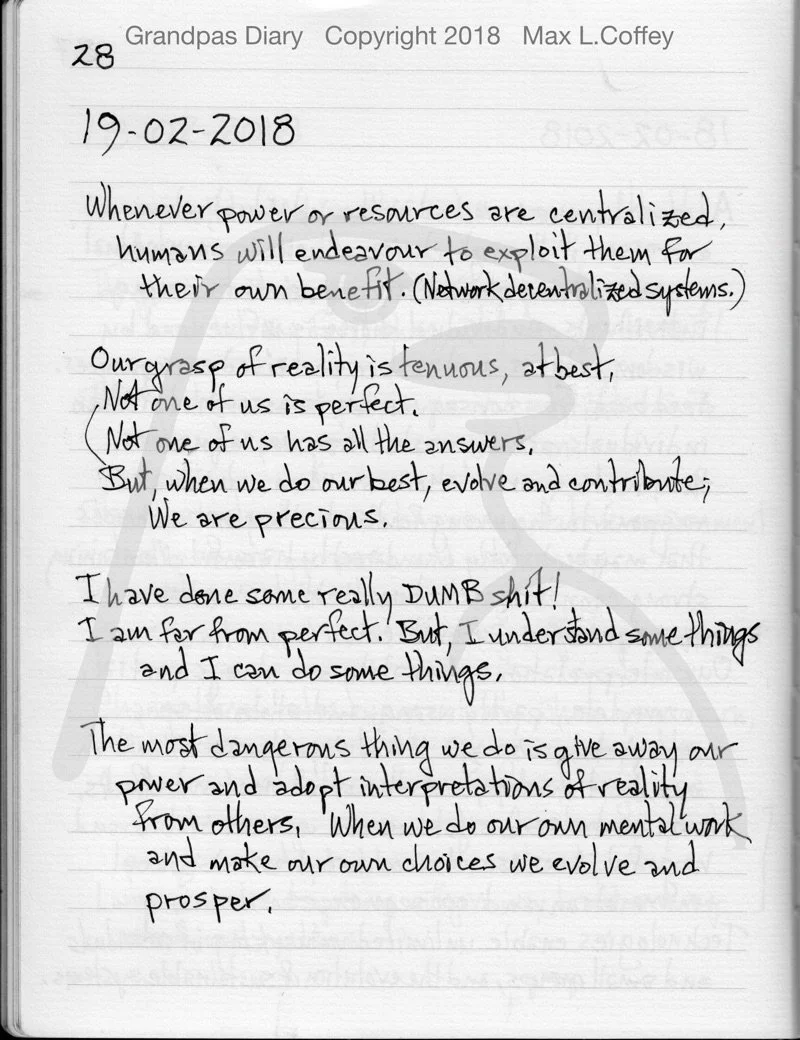 Grandpas Diary Copyright 2018 Max L.Coffey
28
19-02-2018
Whenever power or resources are centralized,
humans will endeavour to exploit them for
their own benefit. (Network decentralized systems.)
Our grasp of reality is tenuous, at best,
Not one of us is perfect.
(Not one of us has all the answers,
But, when we do our best, evolve and contribute;
We are precious.
I have done some really DUMB shit!
I am far from perfect. But, I understand some things
and I can do some things.
The most dangerous thing we do is give away our
power and adopt interpretations of reality
from others. When we do our own mental work
and make our own choices we evolve and
prosper.